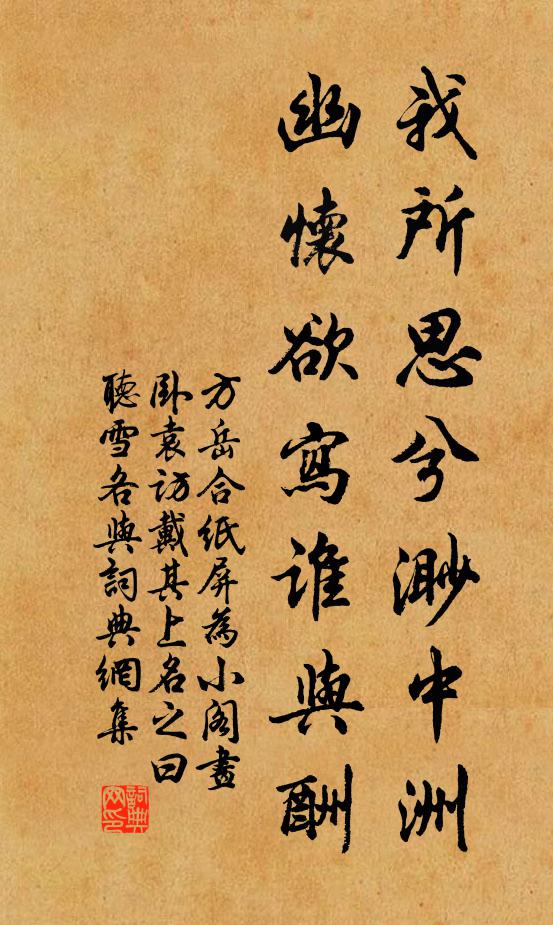 我所思兮渺中洲
幽懷欲寫誰與酬
方岳合紙屏為小閣畫
卧袁訪戴其上名之曰
聽雪各與詞典網集
詞典
网印